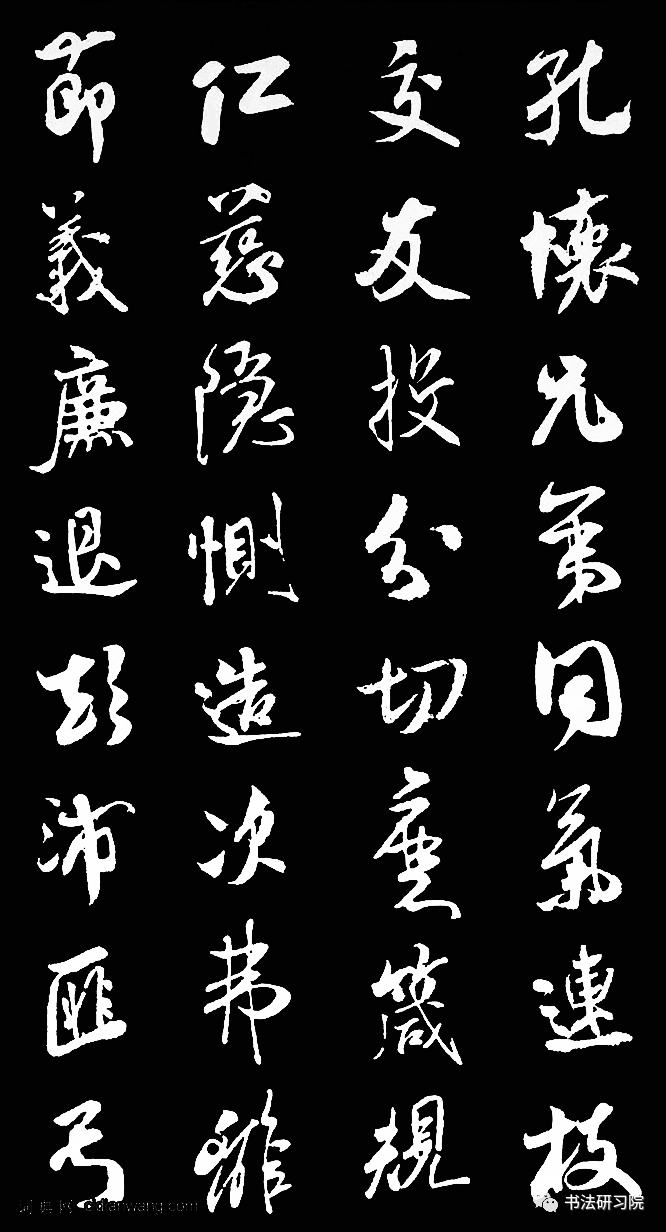 孔懷兄弟同氣連枝
交友投分切磨箴規
仁慈隱惻造次弗離
節義廉退顛沛匪虧
书法研习院